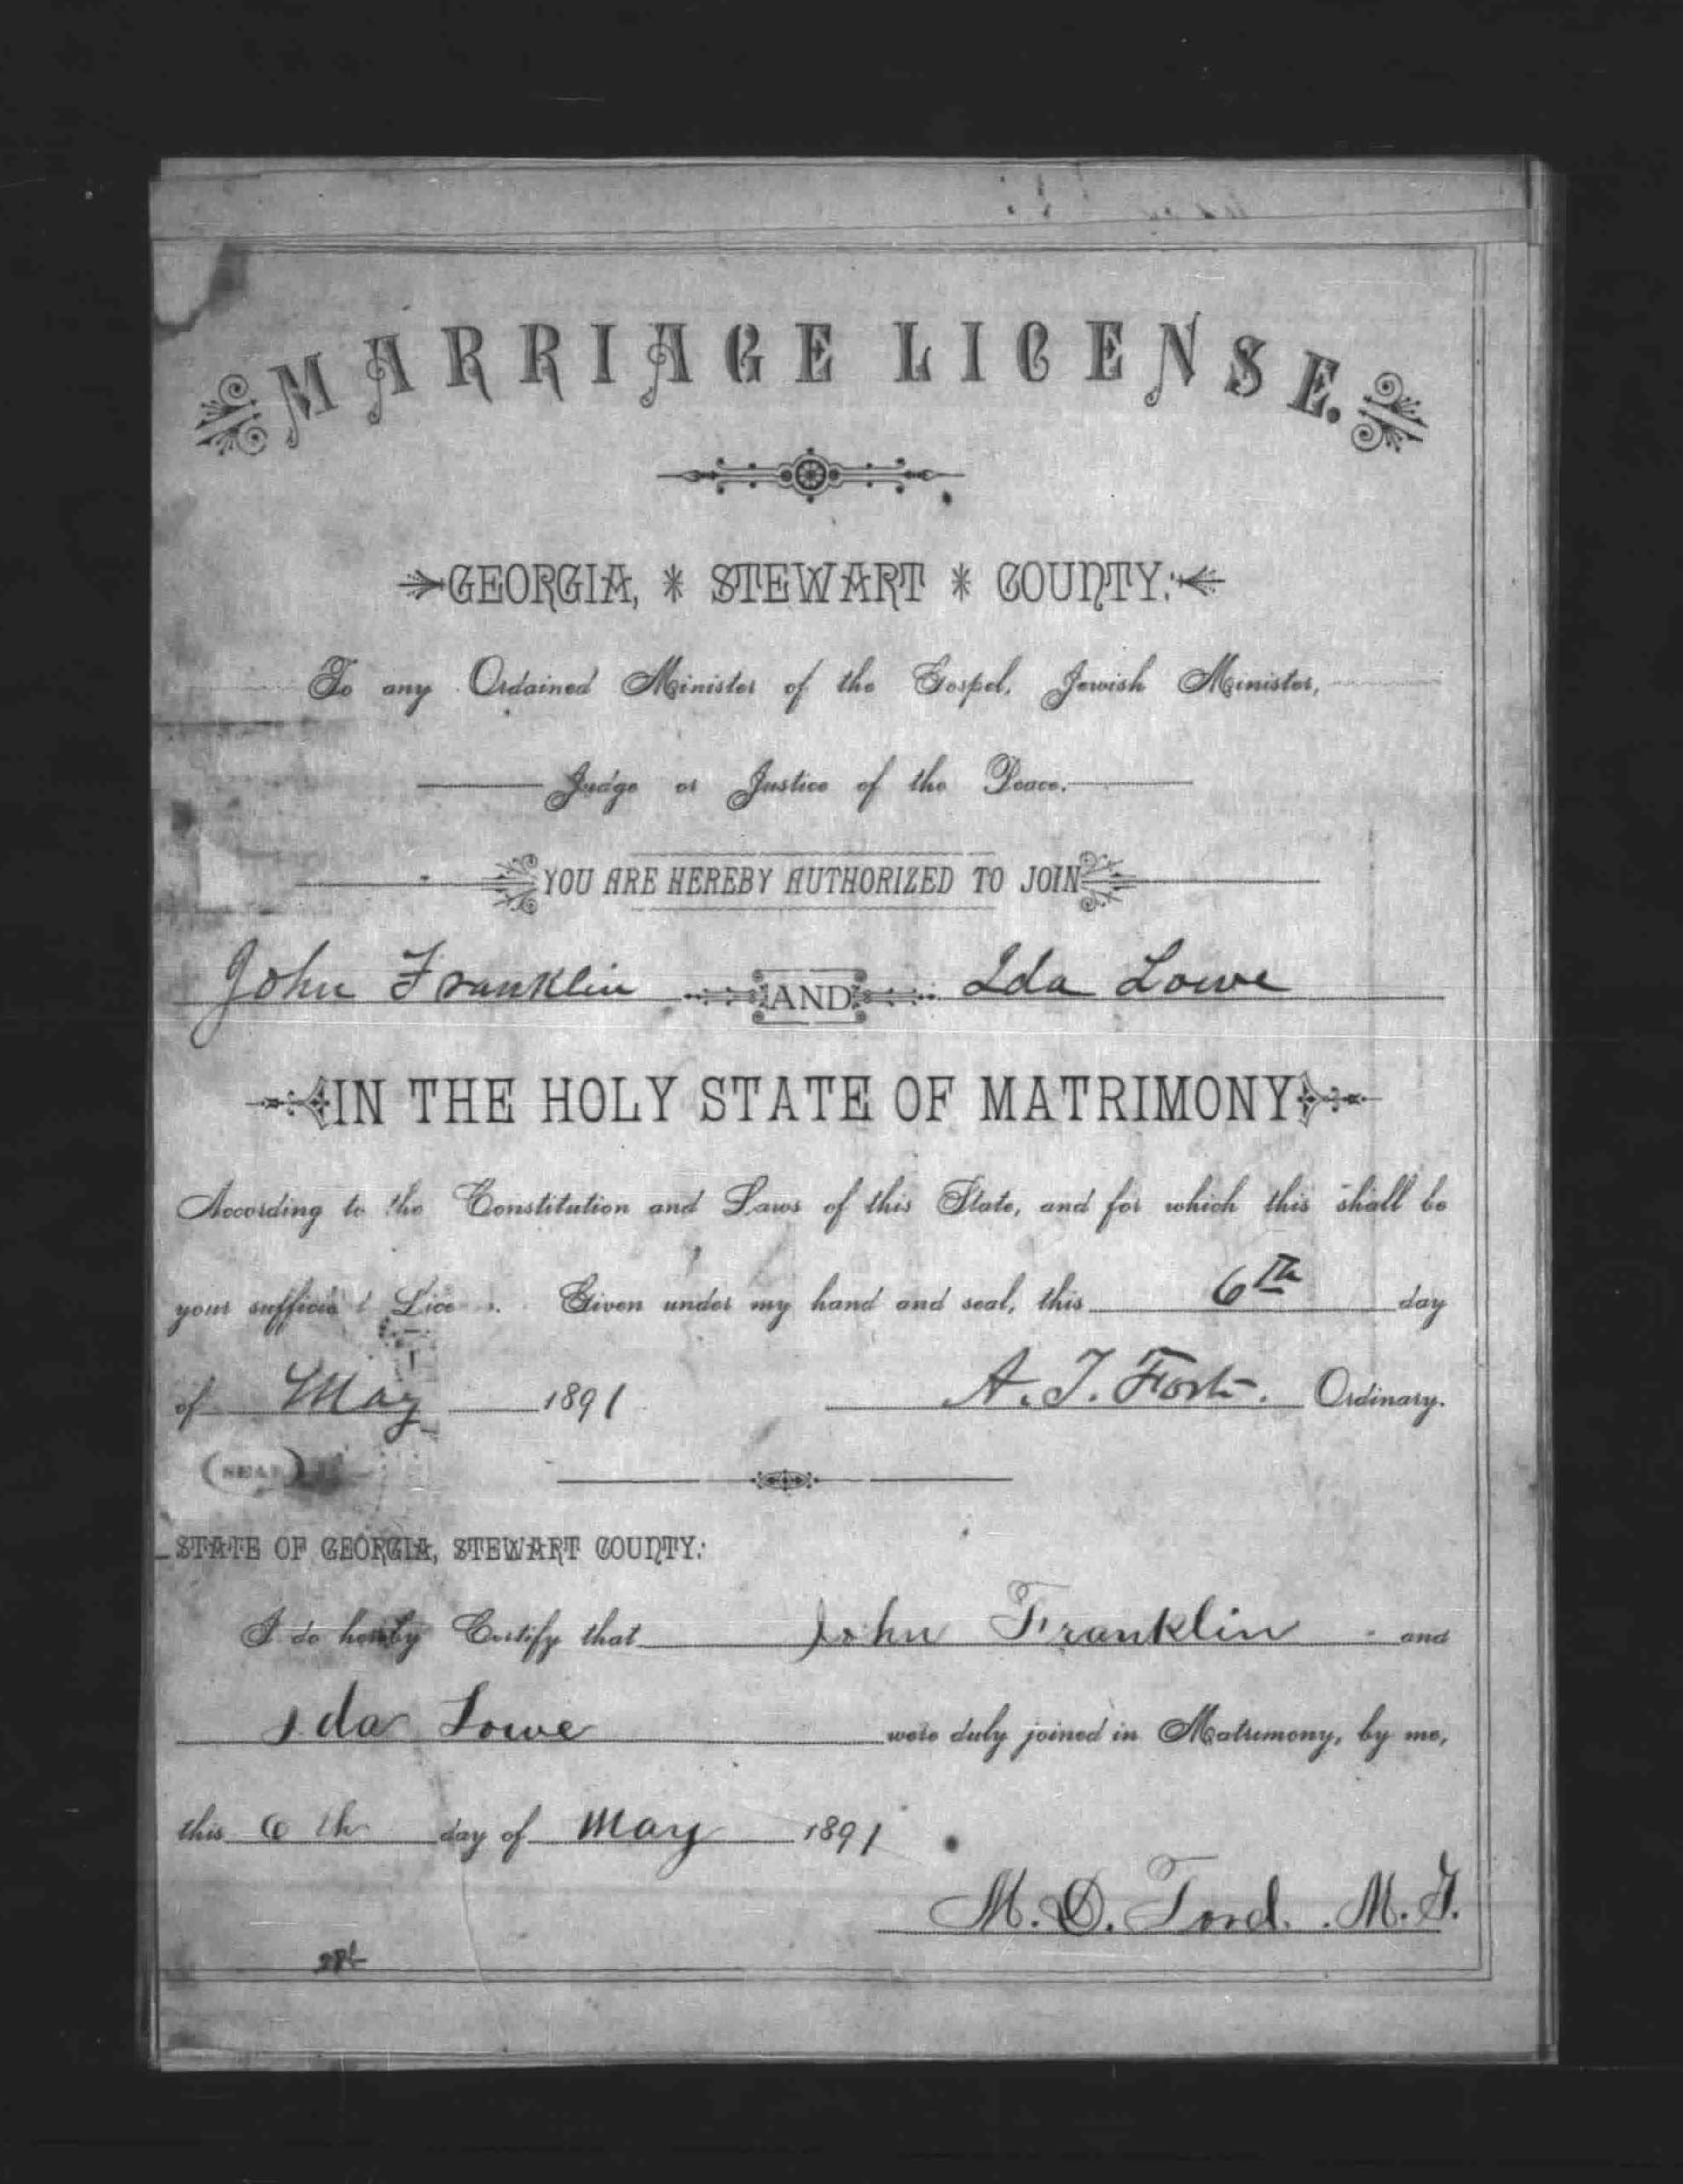 MARRIAGE LICENSE.
GEORGIA, * STEWART * COUNTY:
To any Ordained Minister of the Gospel, Jewish Minister,
Judge or Justice of the Peace.
YOU ARE HEREBY AUTHORIZED TO JOIN
John Franklin AND Ida Lowe
IN THE HOLY STATE OF MATRIMONY
According to the Constitution and Laws of this State, and for which this shall be
your Given under my hand and seal, this 6th day
of May 1891 A. T. Fort. Ordinary.
(SEAL)
STATE OF GEORGIA, STEWART COUNTY:
I do hereby Certify that John Franklin and
Ida Lowe were duly joined in Matrimony, by me,
this 6th day of May 1891
M. D. M. G.